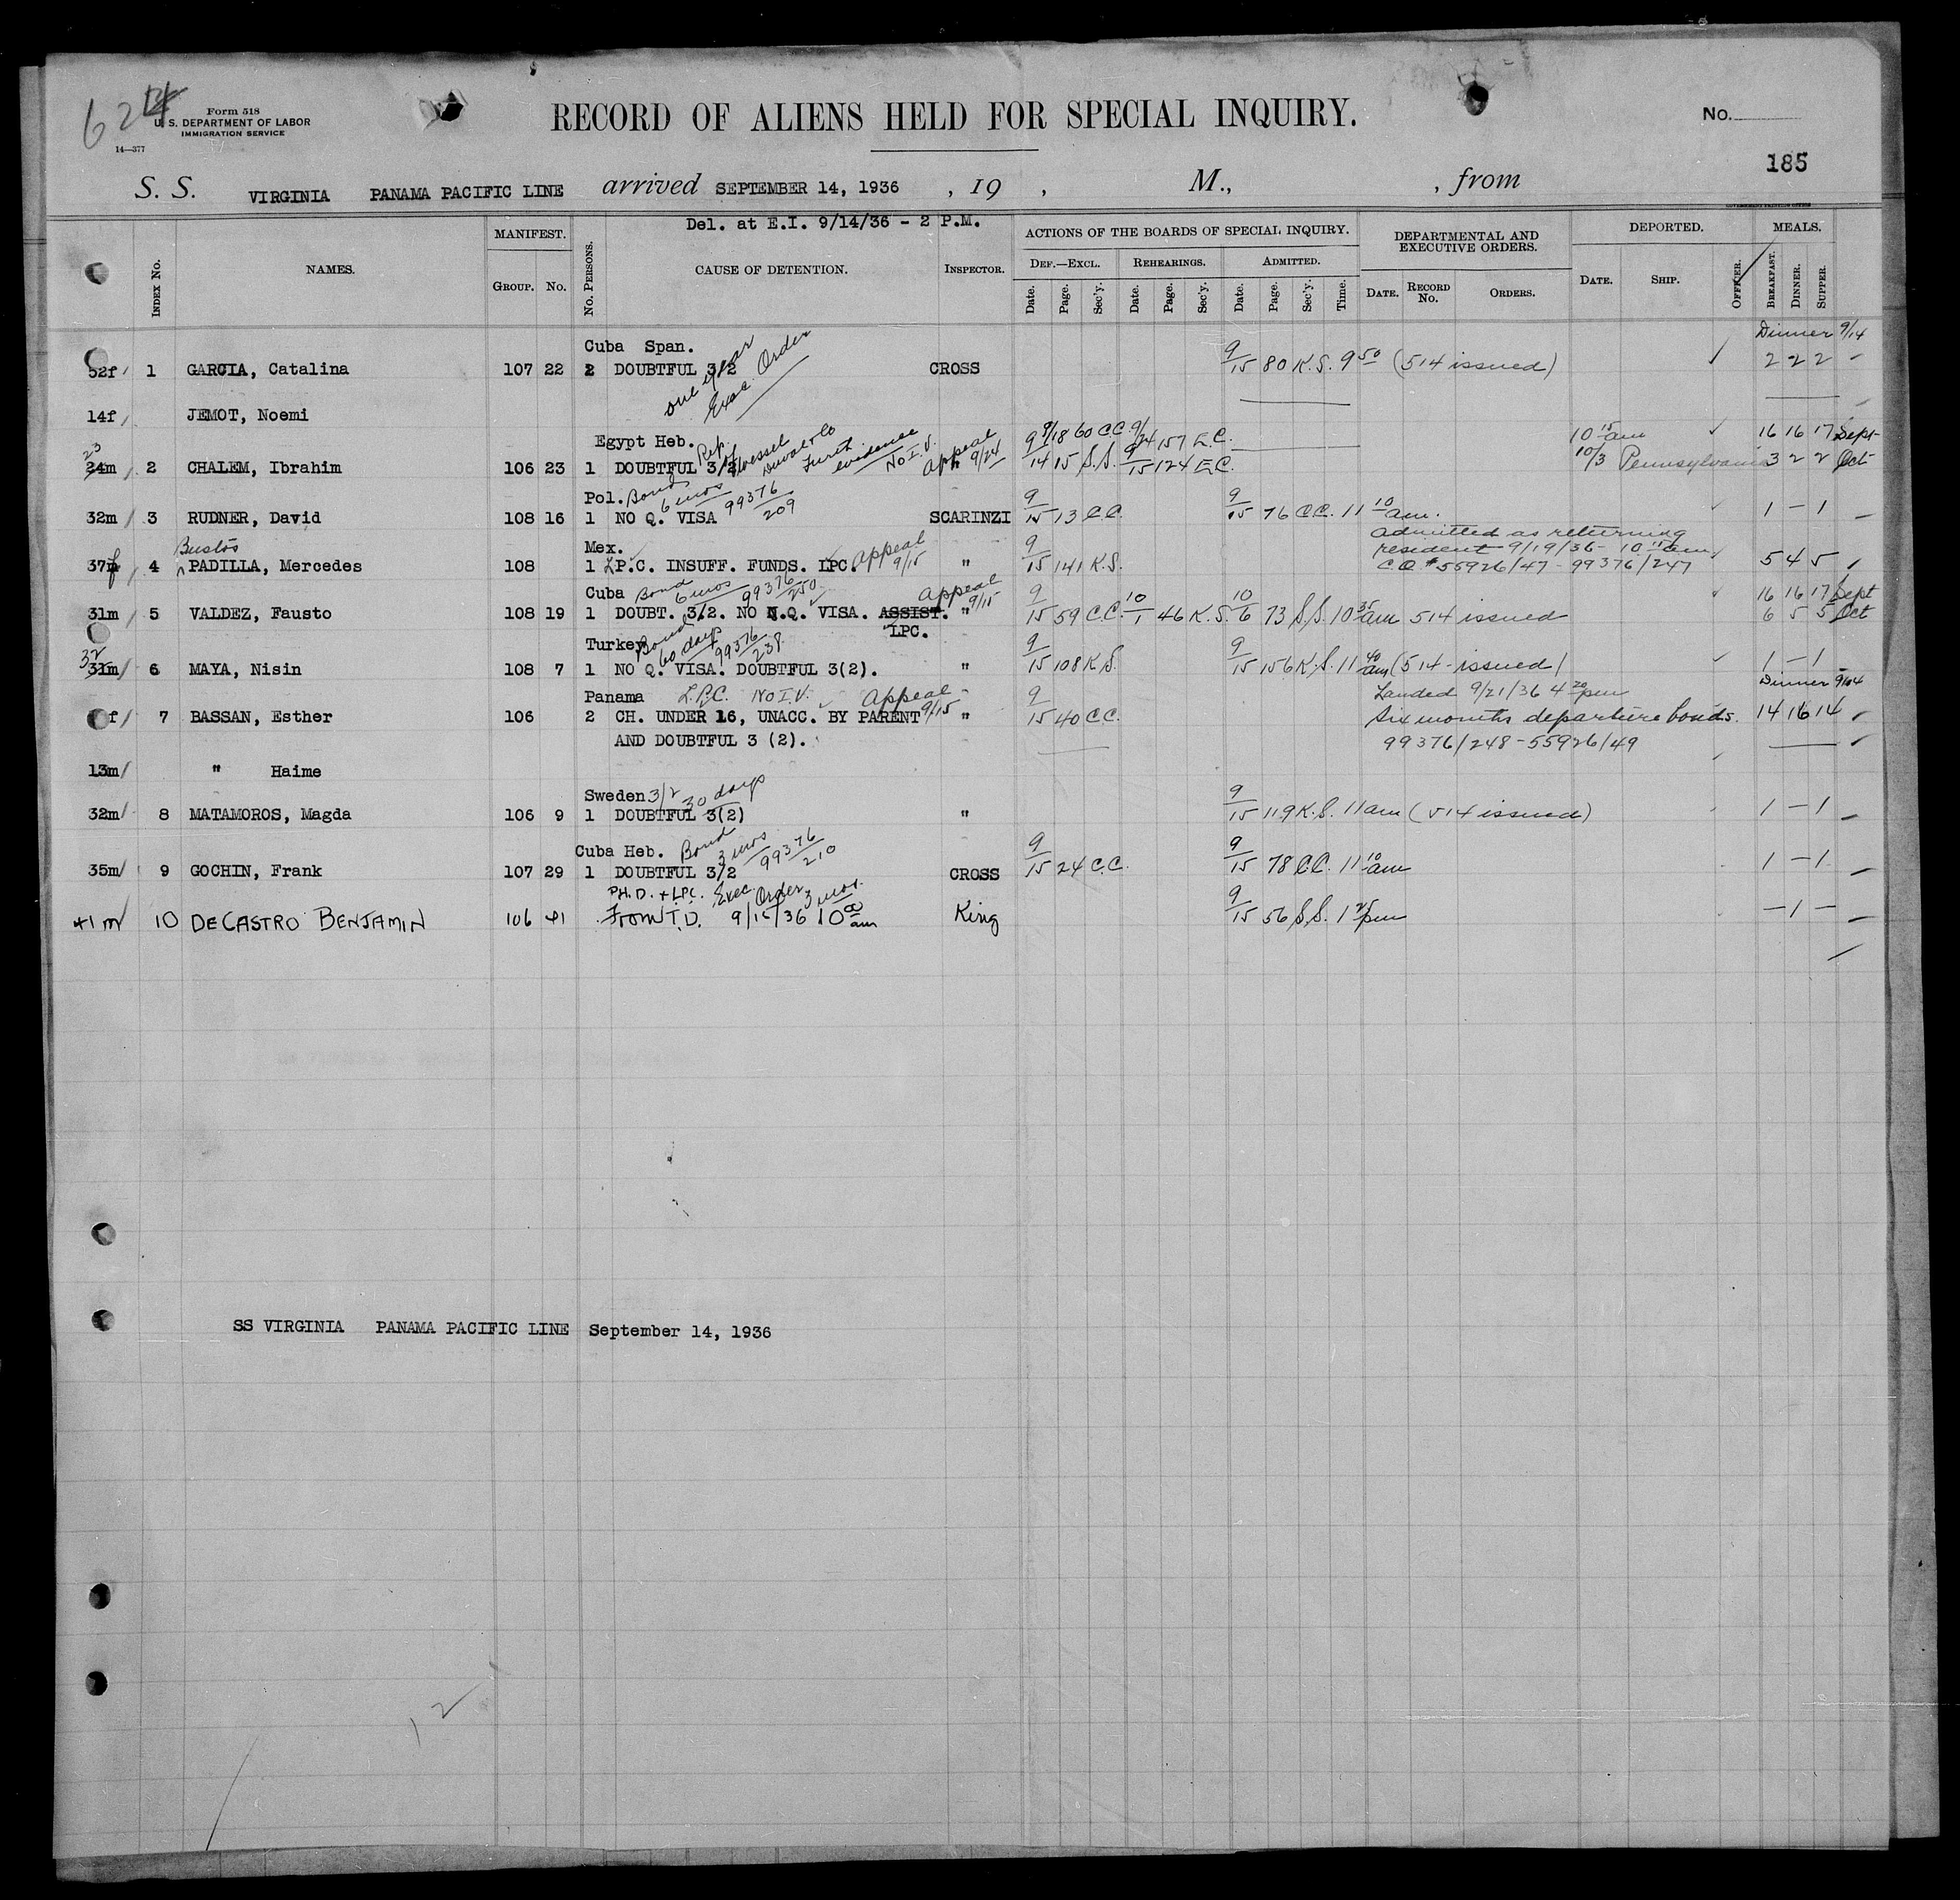 624
Form 518
U. S. DEPARTMENT OF LABOR
IMMIGRATION SERVICE
14—377
RECORD OF ALIENS HELD FOR SPECIAL INQUIRY.
No.
185
S. S. VIRGINIA PANAMA PACIFIC LINE arrived SEPTEMBER 14, 1936 , 19 , M., , from
GOVERNMENT PRINTING OFFICE
Del. at E.I. 9/14/36 - 2 P.M.
INDEX No. NAMES. MANIFEST. GROUP. No. No. PERSONS. CAUSE OF DETENTION. INSPECTOR. ACTIONS OF THE BOARDS OF SPECIAL INQUIRY. DEF.—EXCL. Date. Page. Sec'y. REHEARINGS. Date. Page. Sec'y. ADMITTED. Date. Page. Sec'y. Time. DEPARTMENTAL AND EXECUTIVE ORDERS. DATE. RECORD No. ORDERS. DEPORTED. DATE. SHIP. OFFICER. MEALS. BREAKFAST. DINNER. SUPPER.
Dinner 9/14
Cuba Span. one year Exec. Order
52f 1 GARCIA, Catalina 107 22 2 DOUBTFUL 3/2 CROSS 9/15 80 K.S. 9 50 (514 issued) 2 2 2
14f JEMOT, Noemi
Egypt Heb. Rep. of vessel Further evidence No I.V. Appeal 9/24 9/18 60 C.C. 9/24 157 E.C. 10 15 am 16 16 17 Sept
23
24m 2 CHALEM, Ibrahim 106 23 1 DOUBTFUL 3/2 9/14 15 S.S. 9/15 124 E.C. 10/3 Pennsylvania 3 2 2 Oct
Pol. Bond 6 mos 99376/209
32m 3 RUDNER, David 108 16 1 NO Q. VISA SCARINZI 9/15 13 C.C. 9/15 76 C.C. 11 10 am. 1 – 1
Admitted as returning
Bustos
Mex. Appeal 9/15 resident - 9/19/36 - 10 15 am
37f 4 PADILLA, Mercedes 108 1 L.P.C. INSUFF. FUNDS. LPC. " 9/15 141 K.S. C.O. # 55926/47 - 99376/247 5 4 5
Cuba Bond 6 mos 99376/250 Appeal 9/15 16 16 17 Sept
31m 5 VALDEZ, Fausto 108 19 1 DOUBT. 3/2. NO N.Q. VISA. ASSIST. " 9/15 59 C.C. 10/1 46 K.S. 10/6 73 S.S. 10 35 am 514 issued 6 5 5 Oct
LPC.
32
Turkey Bond 60 days 99376/238
31m 6 MAYA, Nisin 108 7 1 NO Q. VISA. DOUBTFUL 3(2). " 9/15 108 K.S. 9/15 156 K.S. 11 40 am (514 issued) 1 – 1
Panama L.P.C. No I.V. Appeal 9/15 Landed 9/21/36 4 20 pm Dinner 9/14
f 7 BASSAN, Esther 106 2 CH. UNDER 16, UNACC. BY PARENT " 9/15 40 C.C. Six months departure bonds. 14 16 14
AND DOUBTFUL 3 (2). 99376/248 - 55926/49
13m " Haime
Sweden 3/2 30 days
32m 8 MATAMOROS, Magda 106 9 1 DOUBTFUL 3(2) " 9/15 119 K.S. 11 am (514 issued) 1 – 1
Cuba Heb. Bond 3 mos 99376/210
35m 9 GOCHIN, Frank 107 29 1 DOUBTFUL 3/2 CROSS 9/15 24 C.C. 9/15 78 C.C. 11 10 am 1 – 1
P.H.D. + L.P.C. Exec. Order 3 mos.
41m 10 DECASTRO BENJAMIN 106 41 From T.D. 9/15/36 10 am King 9/15 56 S.S. 1 25 pm – 1 –
SS VIRGINIA PANAMA PACIFIC LINE September 14, 1936
12